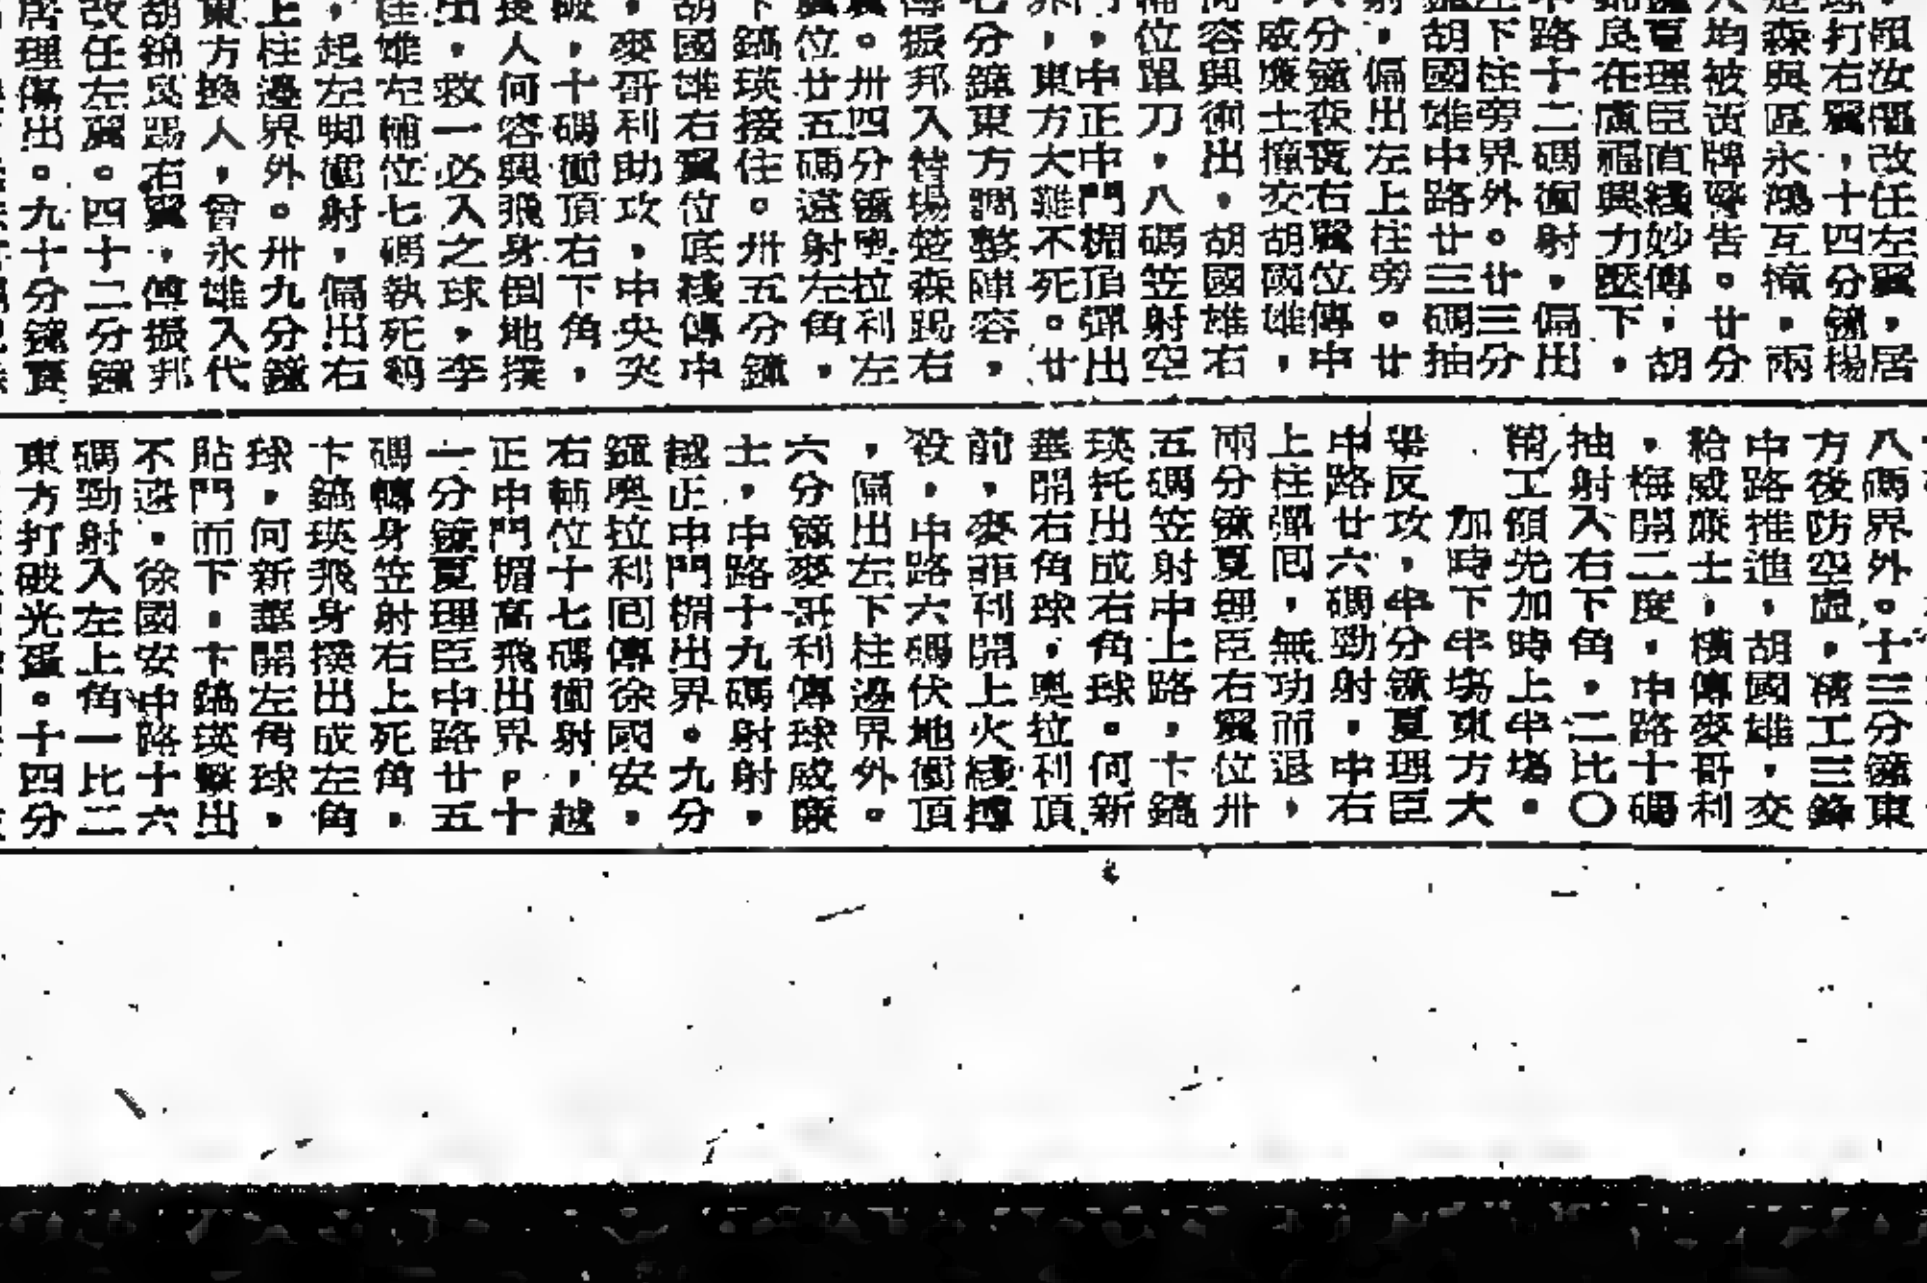 ，顧汝
改任左翼，居
打右翼，十四分鐘楊
楚森與區永鴻互撞，兩
人均被黃牌警告。廿分
鐘夏理臣直綫妙傳，胡
錦良在盧福興力壓下，
中路十二碼衝射，偏出
左下柱旁界外。廿三分
鐘胡國雄中路廿三碼抽
射，偏出左上柱旁。廿
六分鐘
右翼位傳中
，威廉士撞交胡國雄，
何容興衝出，胡國雄右
輔位單刀，八碼笠射空
門，中正中門楣頂彈出
界，東方大難不死。廿
七分鐘東方調整陣容，
傅振邦入替楊楚森踢右
翼。卅四分鐘奧拉利左
翼位廿五碼遠射左角，
卞鎬瑛接住。卅五分鐘
胡國雄右翼位底綫傳中
，麥哥利助攻，中央突
破，十碼衝頂右下角，
門將何容興飛身倒地撲
出，救一必入之球，李
左輔位七碼執死雞
，起左脚衝射，偏出右
上柱邊界外。卅九分鐘
東方換人，曾永雄入代
胡錦良踢右翼，傅振邦
改任左翼。四十二分鐘
居理傷出。九十分鐘
八碼界外。十三分鐘東
方後防空虛，精工三鋒
中路推進，胡國雄，交
給威廉士，橫傳麥哥利
，梅開二度，中路十碼
抽射入右下角，二比〇
精工領先加時上半塲。
加時下半塲東方大
舉反攻，半分鐘夏理臣
中路廿六碼勁射，中右
上柱彈囘，無功而退，
兩分鐘夏理臣右翼位卅
五碼笠射中上路，卞鎬
瑛托出成右角球。何新
華開右角球，奧拉利頂
前，麥菲利開上火綫搏
殺，中路六碼伏地衝頂
，偏出左下柱邊界外。
六分鐘麥哥利傳球威廉
士，中路十九碼射射，
越正中門楣出界。九分
鐘奧拉利囘傳徐國安，
右輔位十七碼衝射，越
正中門楣高飛出界，十
一分鐘夏理臣中路廿五
碼轉身笠射右上死角，
卞鎬瑛飛身撲出成左角
球，何新華開左角球，
貼門而下，卞鎬瑛擊出
不遠，徐國安中路十六
碼勁射入左上角一比二
東方打破光蛋。十四分